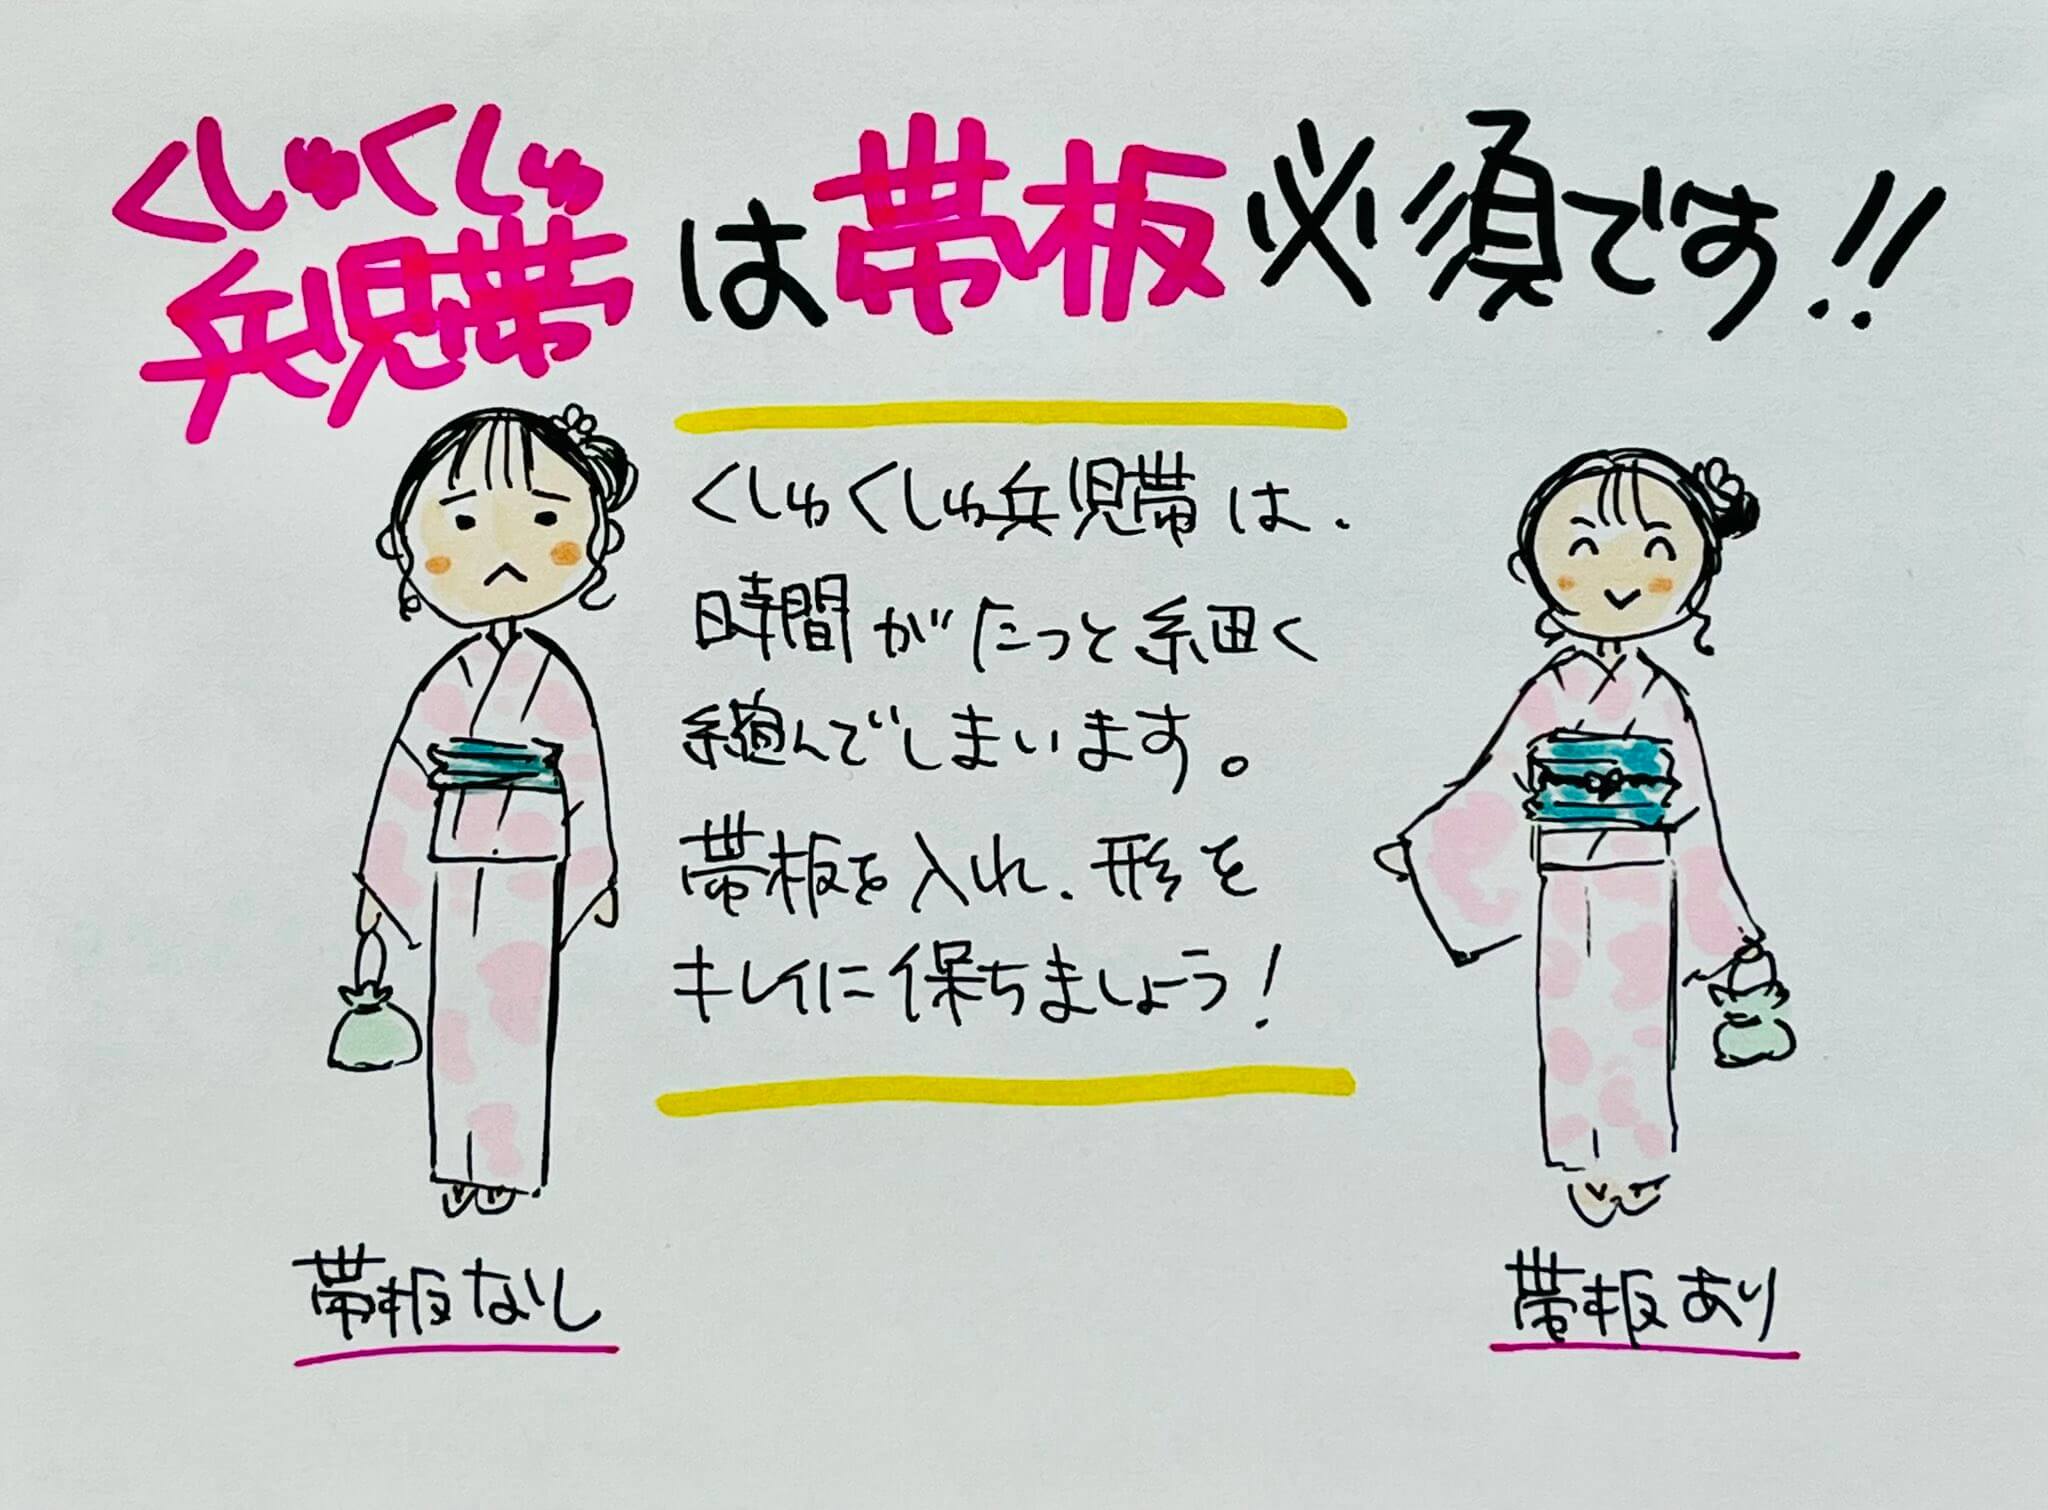 くしゅくしゅ
兵児帯は帯板必須です!!
くしゅくしゅ兵児帯は、
時間がたっと細く
縮んでしまいます。
帯板を入れ、形を
キレイに保ちましょう!
帯板なし
帯板あり